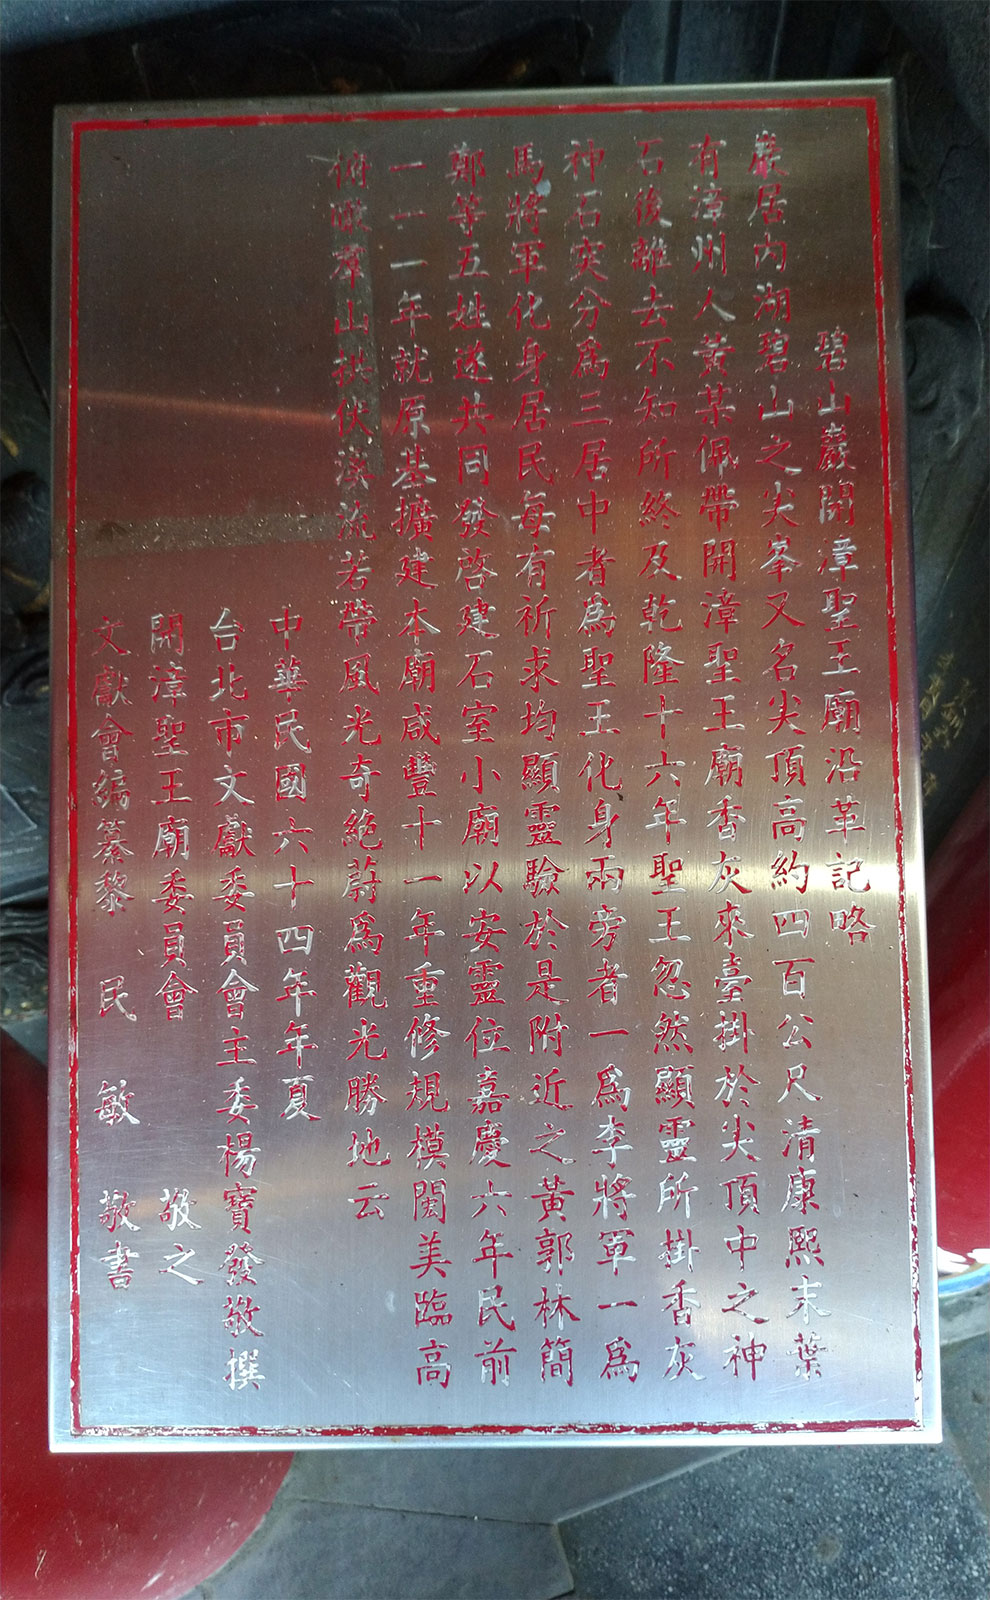 碧山巖開漳聖王廟沿革記略
巖居內湖碧山之尖峯又名尖頂高約四百公尺清康熙末葉
有漳州人黃某佩帶開漳聖王廟香灰來臺掛於尖頂中之神
石後離去不知所終及乾隆十六年聖王忽然顯靈所掛香灰
神石突分為三居中者為聖王化身兩旁者一為李將軍一為
馬將軍化身居民每有祈求均顯靈驗於是附近之黃郭林簡
鄭等五姓遂共同發啓建石室小廟以安靈位嘉慶六年民前
一一一年就原基擴建本廟咸豐十一年重修規模閎美臨高
俯瞰羣山拱伏溪流若帶風光奇絕蔚為觀光勝地云
中華民國六十四年年夏
台北市文獻委員會主委楊寶發敬撰
開漳聖王廟委員會 敬之
文獻會編纂黎 民 敏 敬書